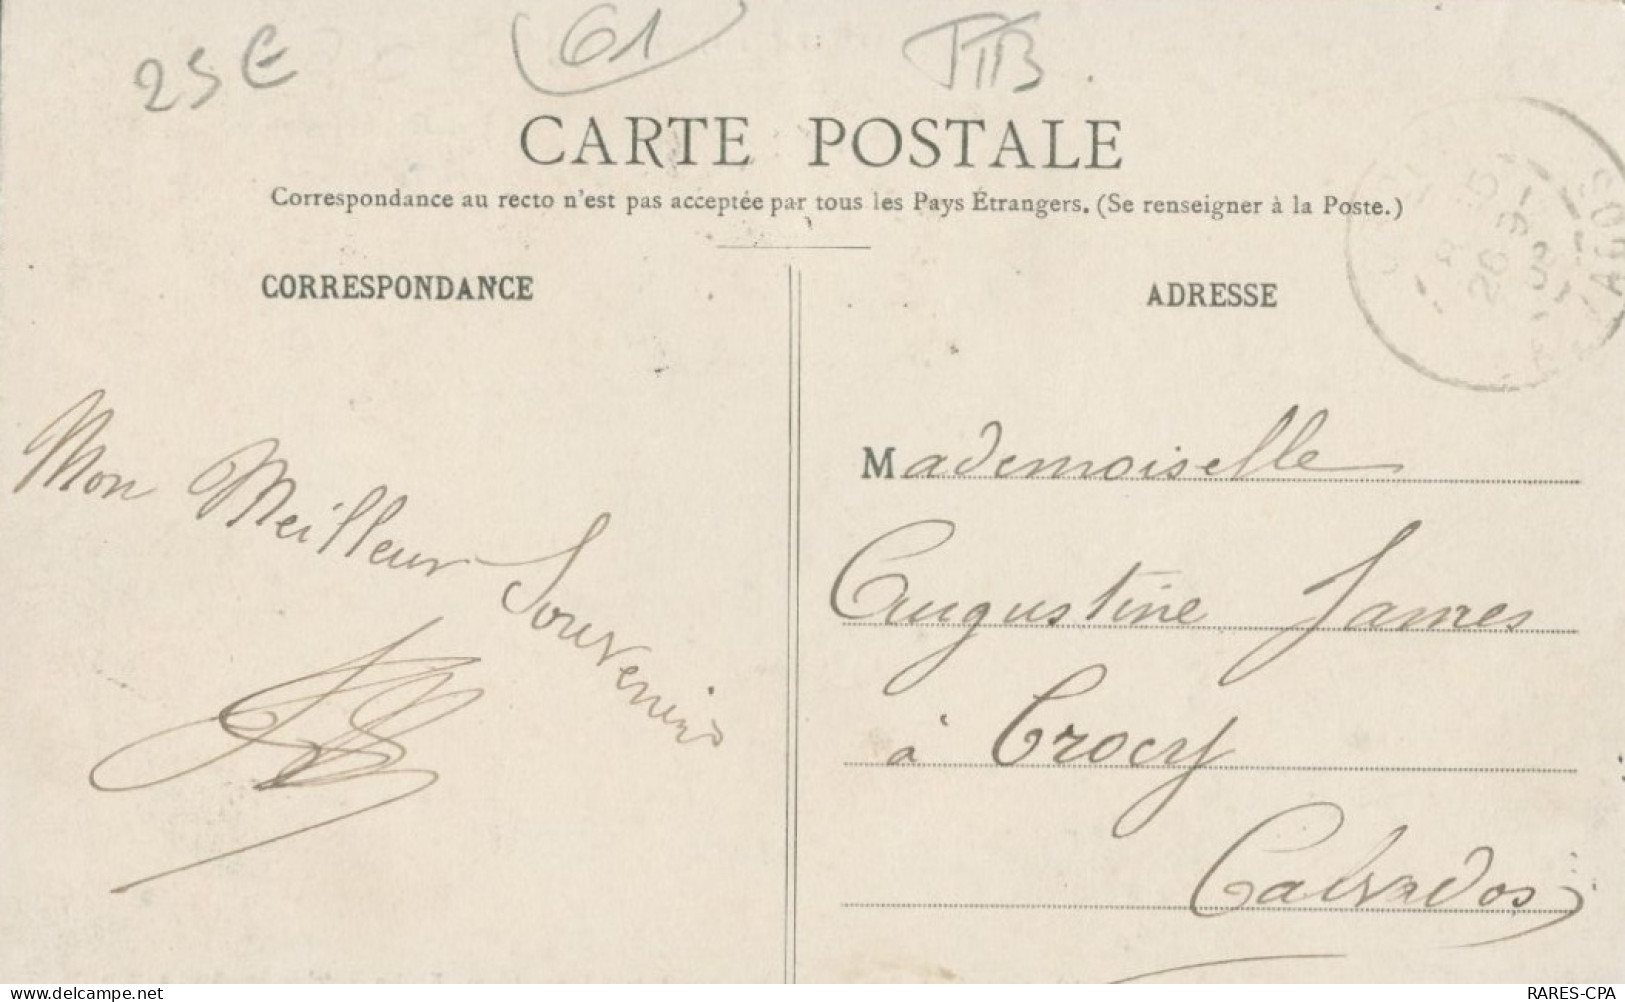 25 E
61
TTB.
CARTE POSTALE
Correspondance au recto n'est pas acceptée par tous les Pays Étrangers. (Se renseigner à la Poste.)
CORRESPONDANCE
Mon Meilleur Souvenir
ADRESSE
Mademoiselle
Augustine James
à Crocy
Calvados
delcampe.net
RARES-CPA